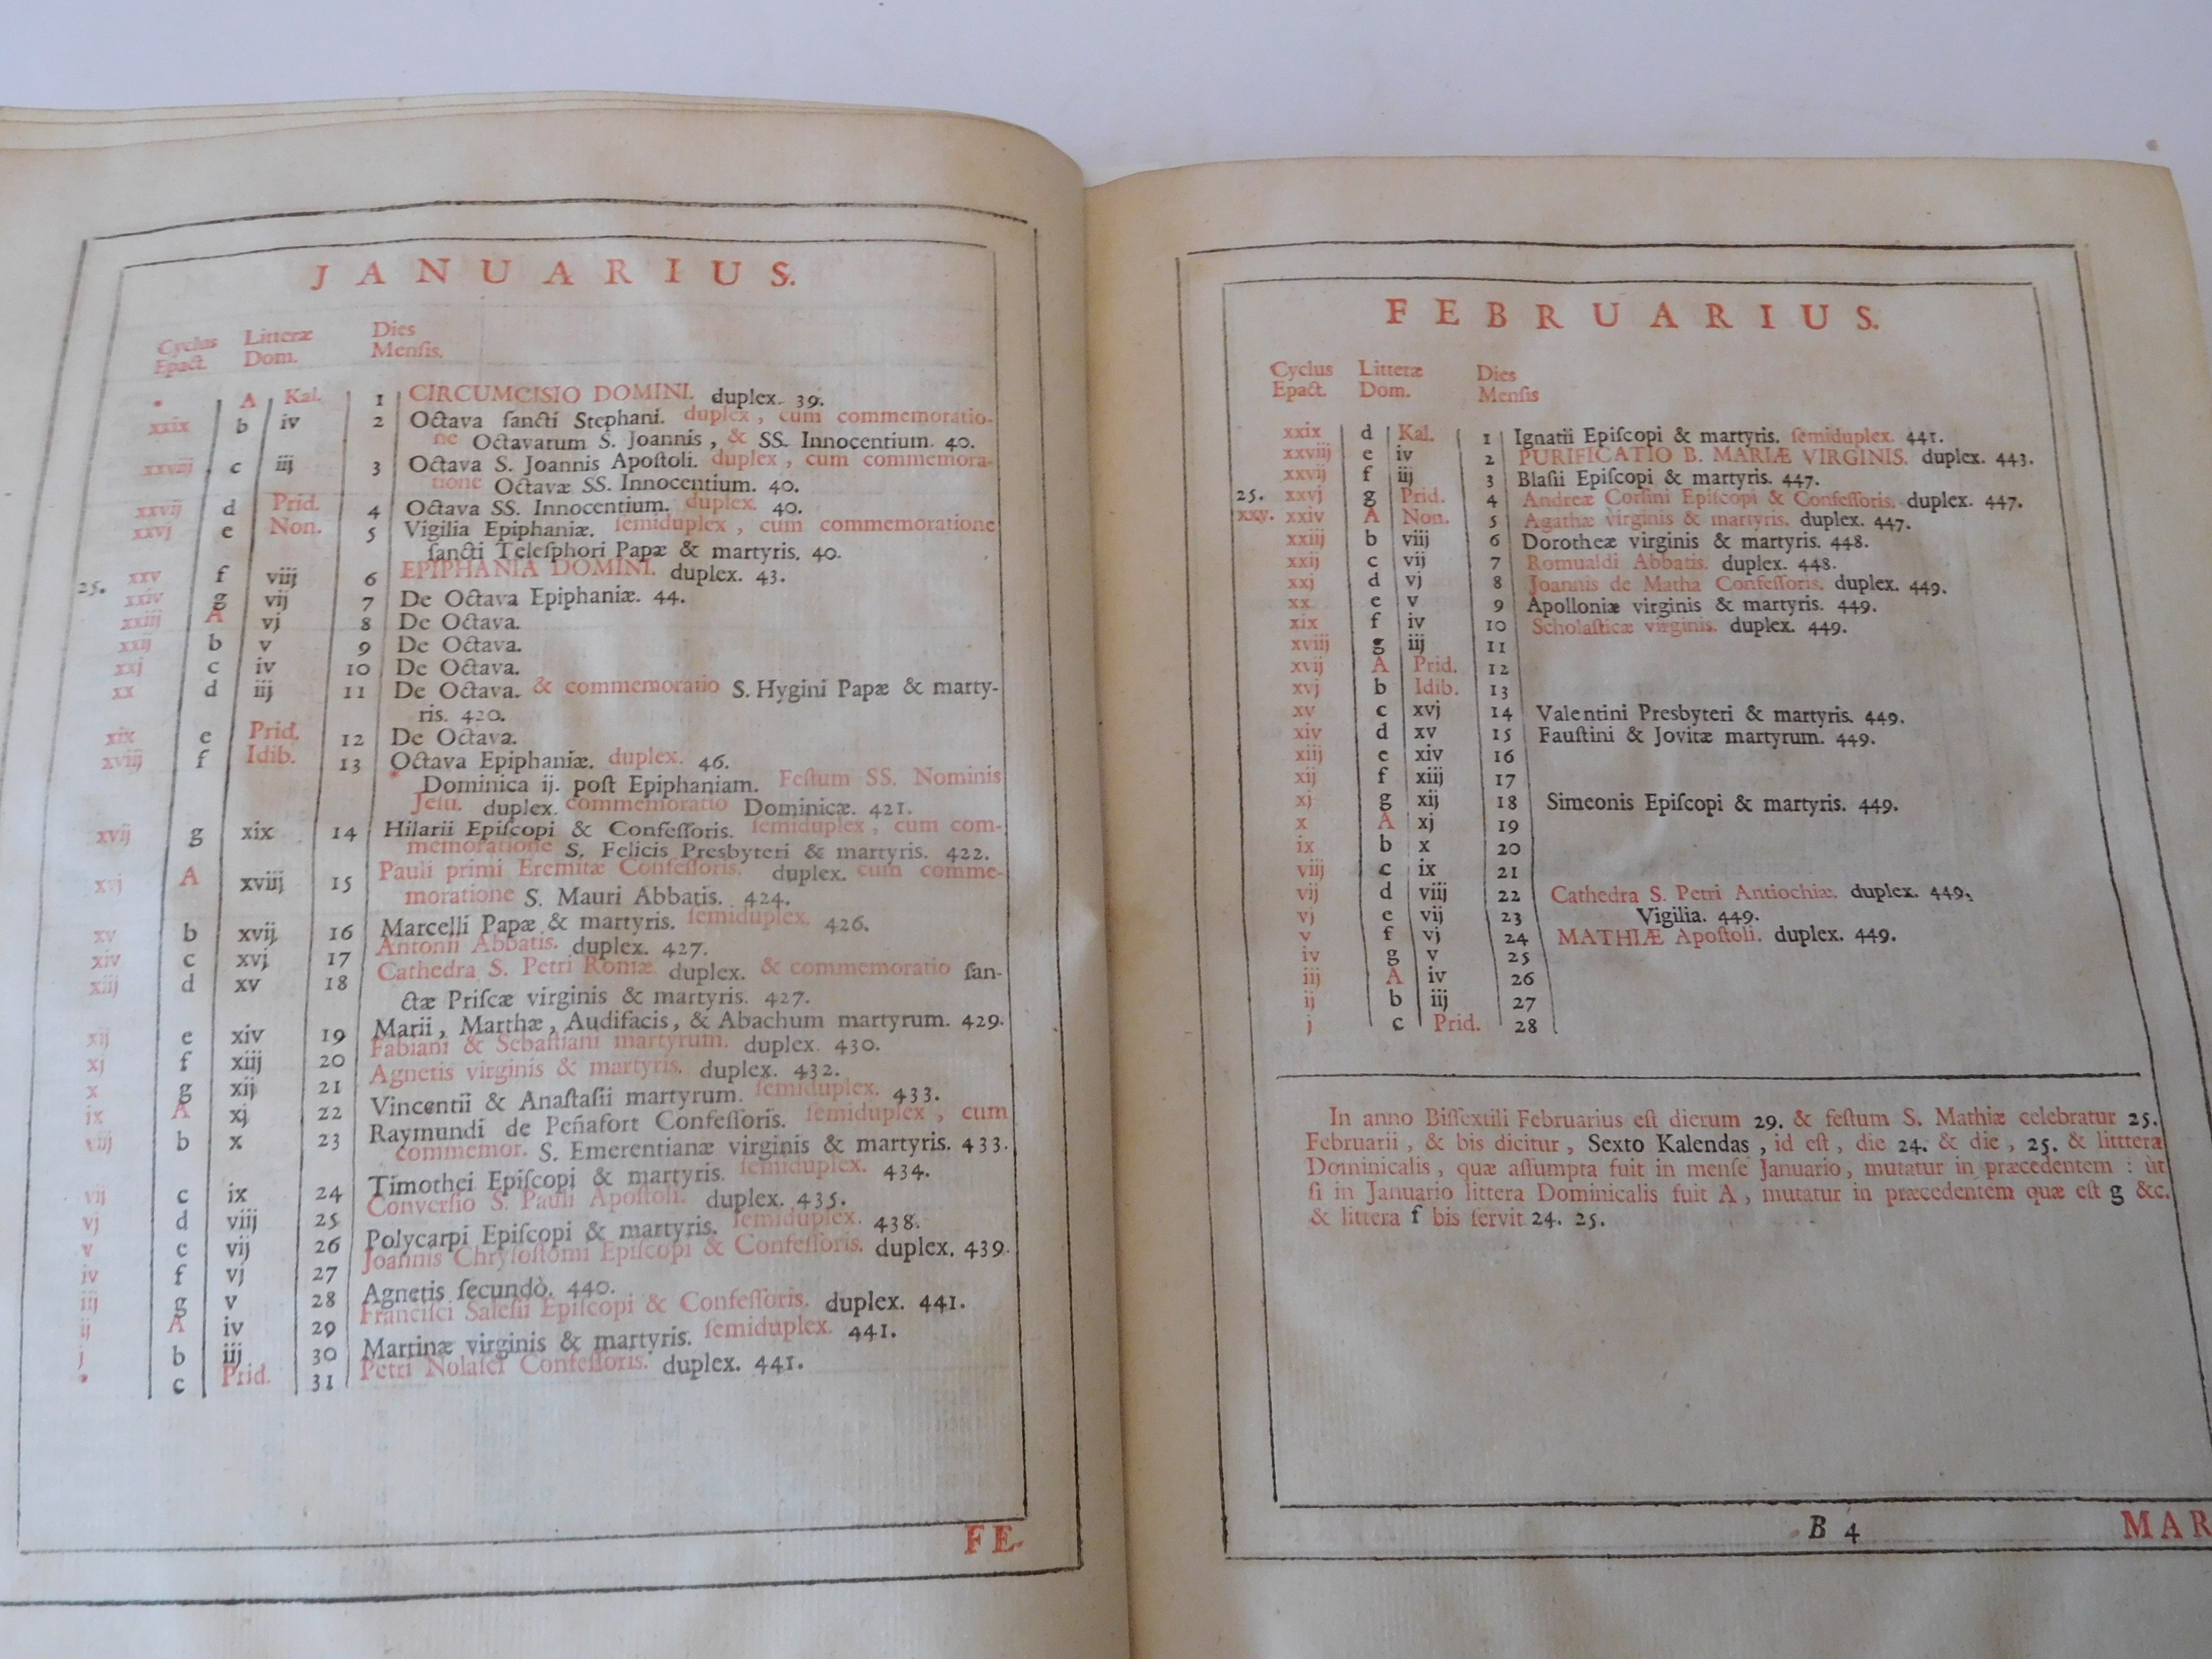 JANUARIUS.
Cyclus Litteræ Dies
Epact. Dom. Menſis.
* A Kal. 1 CIRCUMCISIO DOMINI. duplex. 39.
xxix b iv 2 Octava ſancti Stephani. duplex, cum commemoratio-
ne Octavarum S. Joannis, & SS. Innocentium. 40.
xxviij c iij 3 Octava S. Joannis Apoſtoli. duplex, cum commemora-
tione Octavæ SS. Innocentium. 40.
xxvij d Prid. 4 Octava SS. Innocentium. duplex. 40.
xxvj e Non. 5 Vigilia Epiphaniæ. ſemiduplex, cum commemoratione
ſancti Teleſphori Papæ & martyris. 40.
xxv f viij 6 EPIPHANIA DOMINI. duplex. 43.
25. xxiv g vij 7 De Octava Epiphaniæ. 44.
xxiij A vj 8 De Octava.
xxij b v 9 De Octava.
xxj c iv 10 De Octava.
xx d iij 11 De Octava. & commemoratio S. Hygini Papæ & marty-
ris. 420.
xix e Prid. 12 De Octava.
xviij f Idib. 13 Octava Epiphaniæ. duplex. 46.
* Dominica ij. poſt Epiphaniam. Feſtum SS. Nominis
Jeſu. duplex. commemoratio Dominicæ. 421.
xvij g xix 14 Hilarii Epiſcopi & Confeſſoris. ſemiduplex, cum com-
memoratione S. Felicis Presbyteri & martyris. 422.
xvj A xviij 15 Pauli primi Eremitæ Confeſſoris. duplex. cum comme-
moratione S. Mauri Abbatis. 424.
xv b xvij 16 Marcelli Papæ & martyris. ſemiduplex. 426.
xiv c xvj 17 Antonii Abbatis. duplex. 427.
xiij d xv 18 Cathedra S. Petri Romæ. duplex. & commemoratio ſan-
ctæ Priſcæ virginis & martyris. 427.
xij e xiv 19 Marii, Marthæ, Audifacis, & Abachum martyrum. 429.
xj f xiij 20 Fabiani & Sebaſtiani martyrum. duplex. 430.
x g xij 21 Agnetis virginis & martyris. duplex. 432.
ix A xj 22 Vincentii & Anaſtaſii martyrum. ſemiduplex. 433.
viij b x 23 Raymundi de Peñafort Confeſſoris. ſemiduplex, cum
commemor. S. Emerentianæ virginis & martyris. 433.
vij c ix 24 Timothei Epiſcopi & martyris. ſemiduplex. 434.
vj d viij 25 Converſio S. Pauli Apoſtoli. duplex. 435.
v e vij 26 Polycarpi Epiſcopi & martyris. ſemiduplex. 438.
iv f vj 27 Joannis Chryſoſtomi Epiſcopi & Confeſſoris. duplex. 439.
iij g v 28 Agnetis ſecundò. 440.
ij A iv 29 Franciſci Saleſii Epiſcopi & Confeſſoris. duplex. 441.
j b iij 30 Martinæ virginis & martyris. ſemiduplex. 441.
* c Prid. 31 Petri Nolaſci Confeſſoris. duplex. 441.
FE-
FEBRUARIUS.
Cyclus Litteræ Dies
Epact. Dom. Menſis
xxix d Kal. 1 Ignatii Epiſcopi & martyris. ſemiduplex. 441.
xxviij e iv 2 PURIFICATIO B. MARIÆ VIRGINIS. duplex. 443.
xxvij f iij 3 Blaſii Epiſcopi & martyris. 447.
25. xxvj g Prid. 4 Andreæ Corſini Epiſcopi & Confeſſoris. duplex. 447.
xxv. xxiv A Non. 5 Agathæ virginis & martyris. duplex. 447.
xxiij b viij 6 Dorotheæ virginis & martyris. 448.
xxij c vij 7 Romualdi Abbatis. duplex. 448.
xxj d vj 8 Joannis de Matha Confeſſoris. duplex. 449.
xx e v 9 Apolloniæ virginis & martyris. 449.
xix f iv 10 Scholaſticæ virginis. duplex. 449.
xviij g iij 11
xvij A Prid. 12
xvj b Idib. 13
xv c xvj 14 Valentini Presbyteri & martyris. 449.
xiv d xv 15 Fauſtini & Jovitæ martyrum. 449.
xiij e xiv 16
xij f xiij 17
xj g xij 18 Simeonis Epiſcopi & martyris. 449.
x A xj 19
ix b x 20
viij c ix 21
vij d viij 22 Cathedra S. Petri Antiochiæ. duplex. 449.
vj e vij 23 Vigilia. 449.
v f vj 24 MATHIÆ Apoſtoli. duplex. 449.
iv g v 25
iij A iv 26
ij b iij 27
j c Prid. 28
In anno Biſſextili Februarius eſt dierum 29. & feſtum S. Mathiæ celebratur 25.
Februarii, & bis dicitur, Sexto Kalendas, id eſt, die 24. & die, 25. & litttera
Dominicalis, quæ aſſumpta fuit in menſe Januario, mutatur in præcedentem: ùt
ſi in Januario littera Dominicalis fuit A, mutatur in præcedentem quæ eſt g &c.
& littera f bis ſervit 24. 25.
B 4
MAR